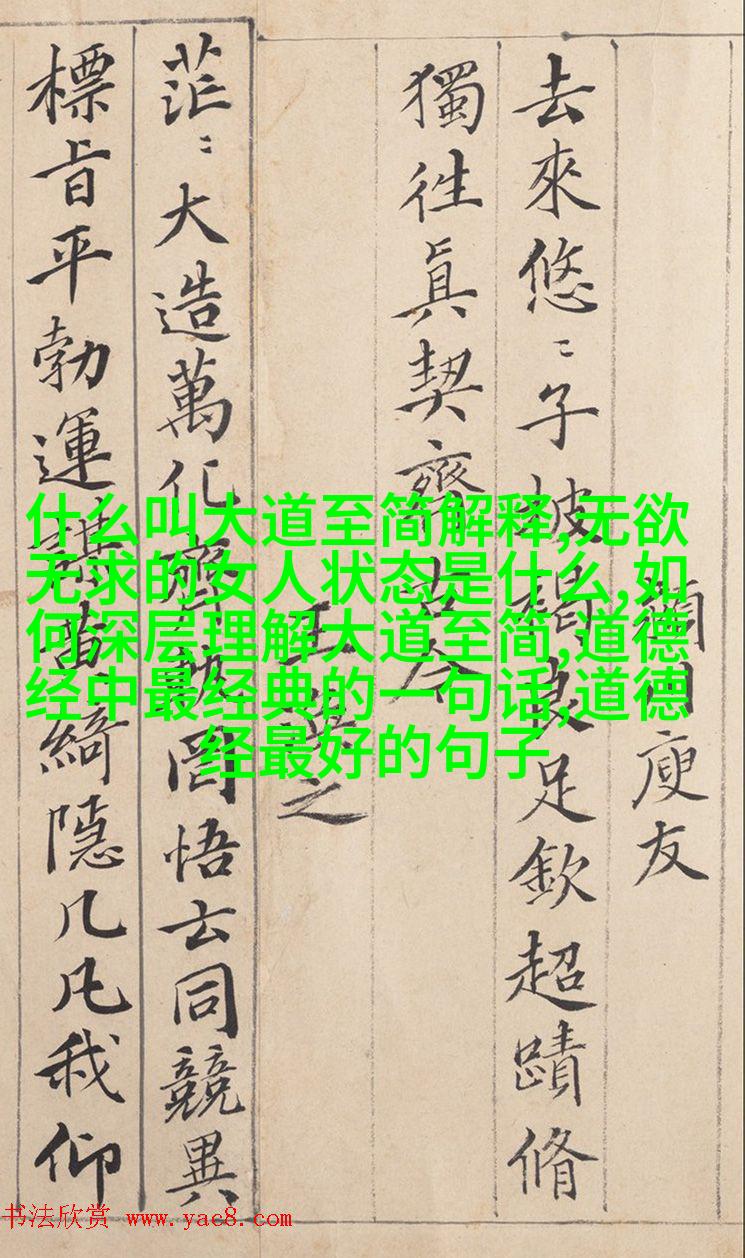 什么叫大道至简解释,无欲
无求的女人状态是什么,如
何深层理解大道至简,道德
经中最经典的一句话,道德
经最好的句子
潁川庾友
去來悠〻子披褐良足欽超蹟脩
獨往真契齊古今
王渙之
茫〻大造萬化齊軌罔悟玄同競異
標旨平勃運謀黃綺隱几凡我仰
书法欣赏 www.yac8.com